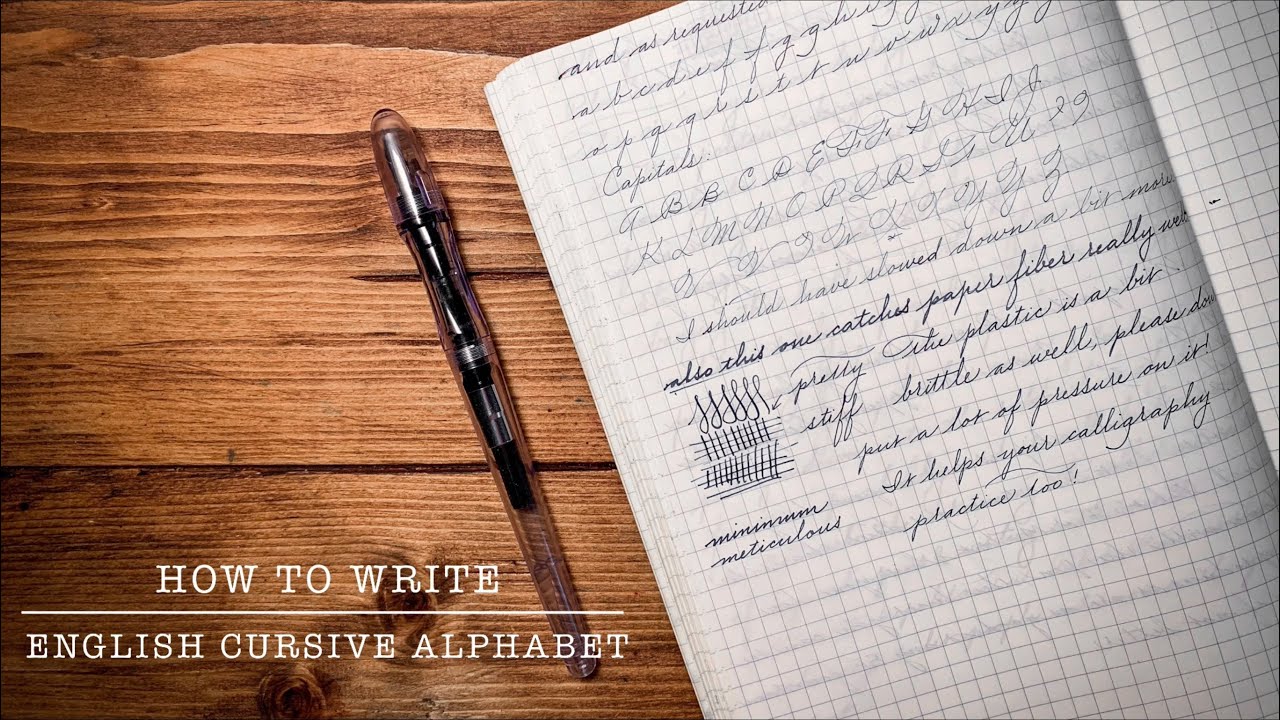 and as requested
a b c d e f f g g h i j
o p q q r s t t u v w x y y z
Capitals:
A B B C D E F F G H I J
K L M N O P Q R S T U 2 9
V V W X X Y Y Z
I should have slowed down a bit more
also this one catches paper fiber really well
pretty the plastic is a bit
stiff brittle as well, please don
put a lot of pressure on it!
It helps your calligraphy
practice too!
minimum
meticulous
HOW TO WRITE
ENGLISH CURSIVE ALPHABET